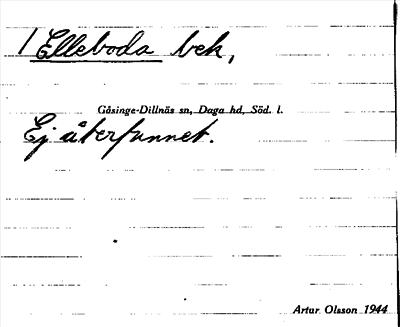 1 Elleboda bek,
Gåsinge-Dillnäs sn, Daga hd, Söd. l.
Ej återfunnet.
Artur Olsson 1944